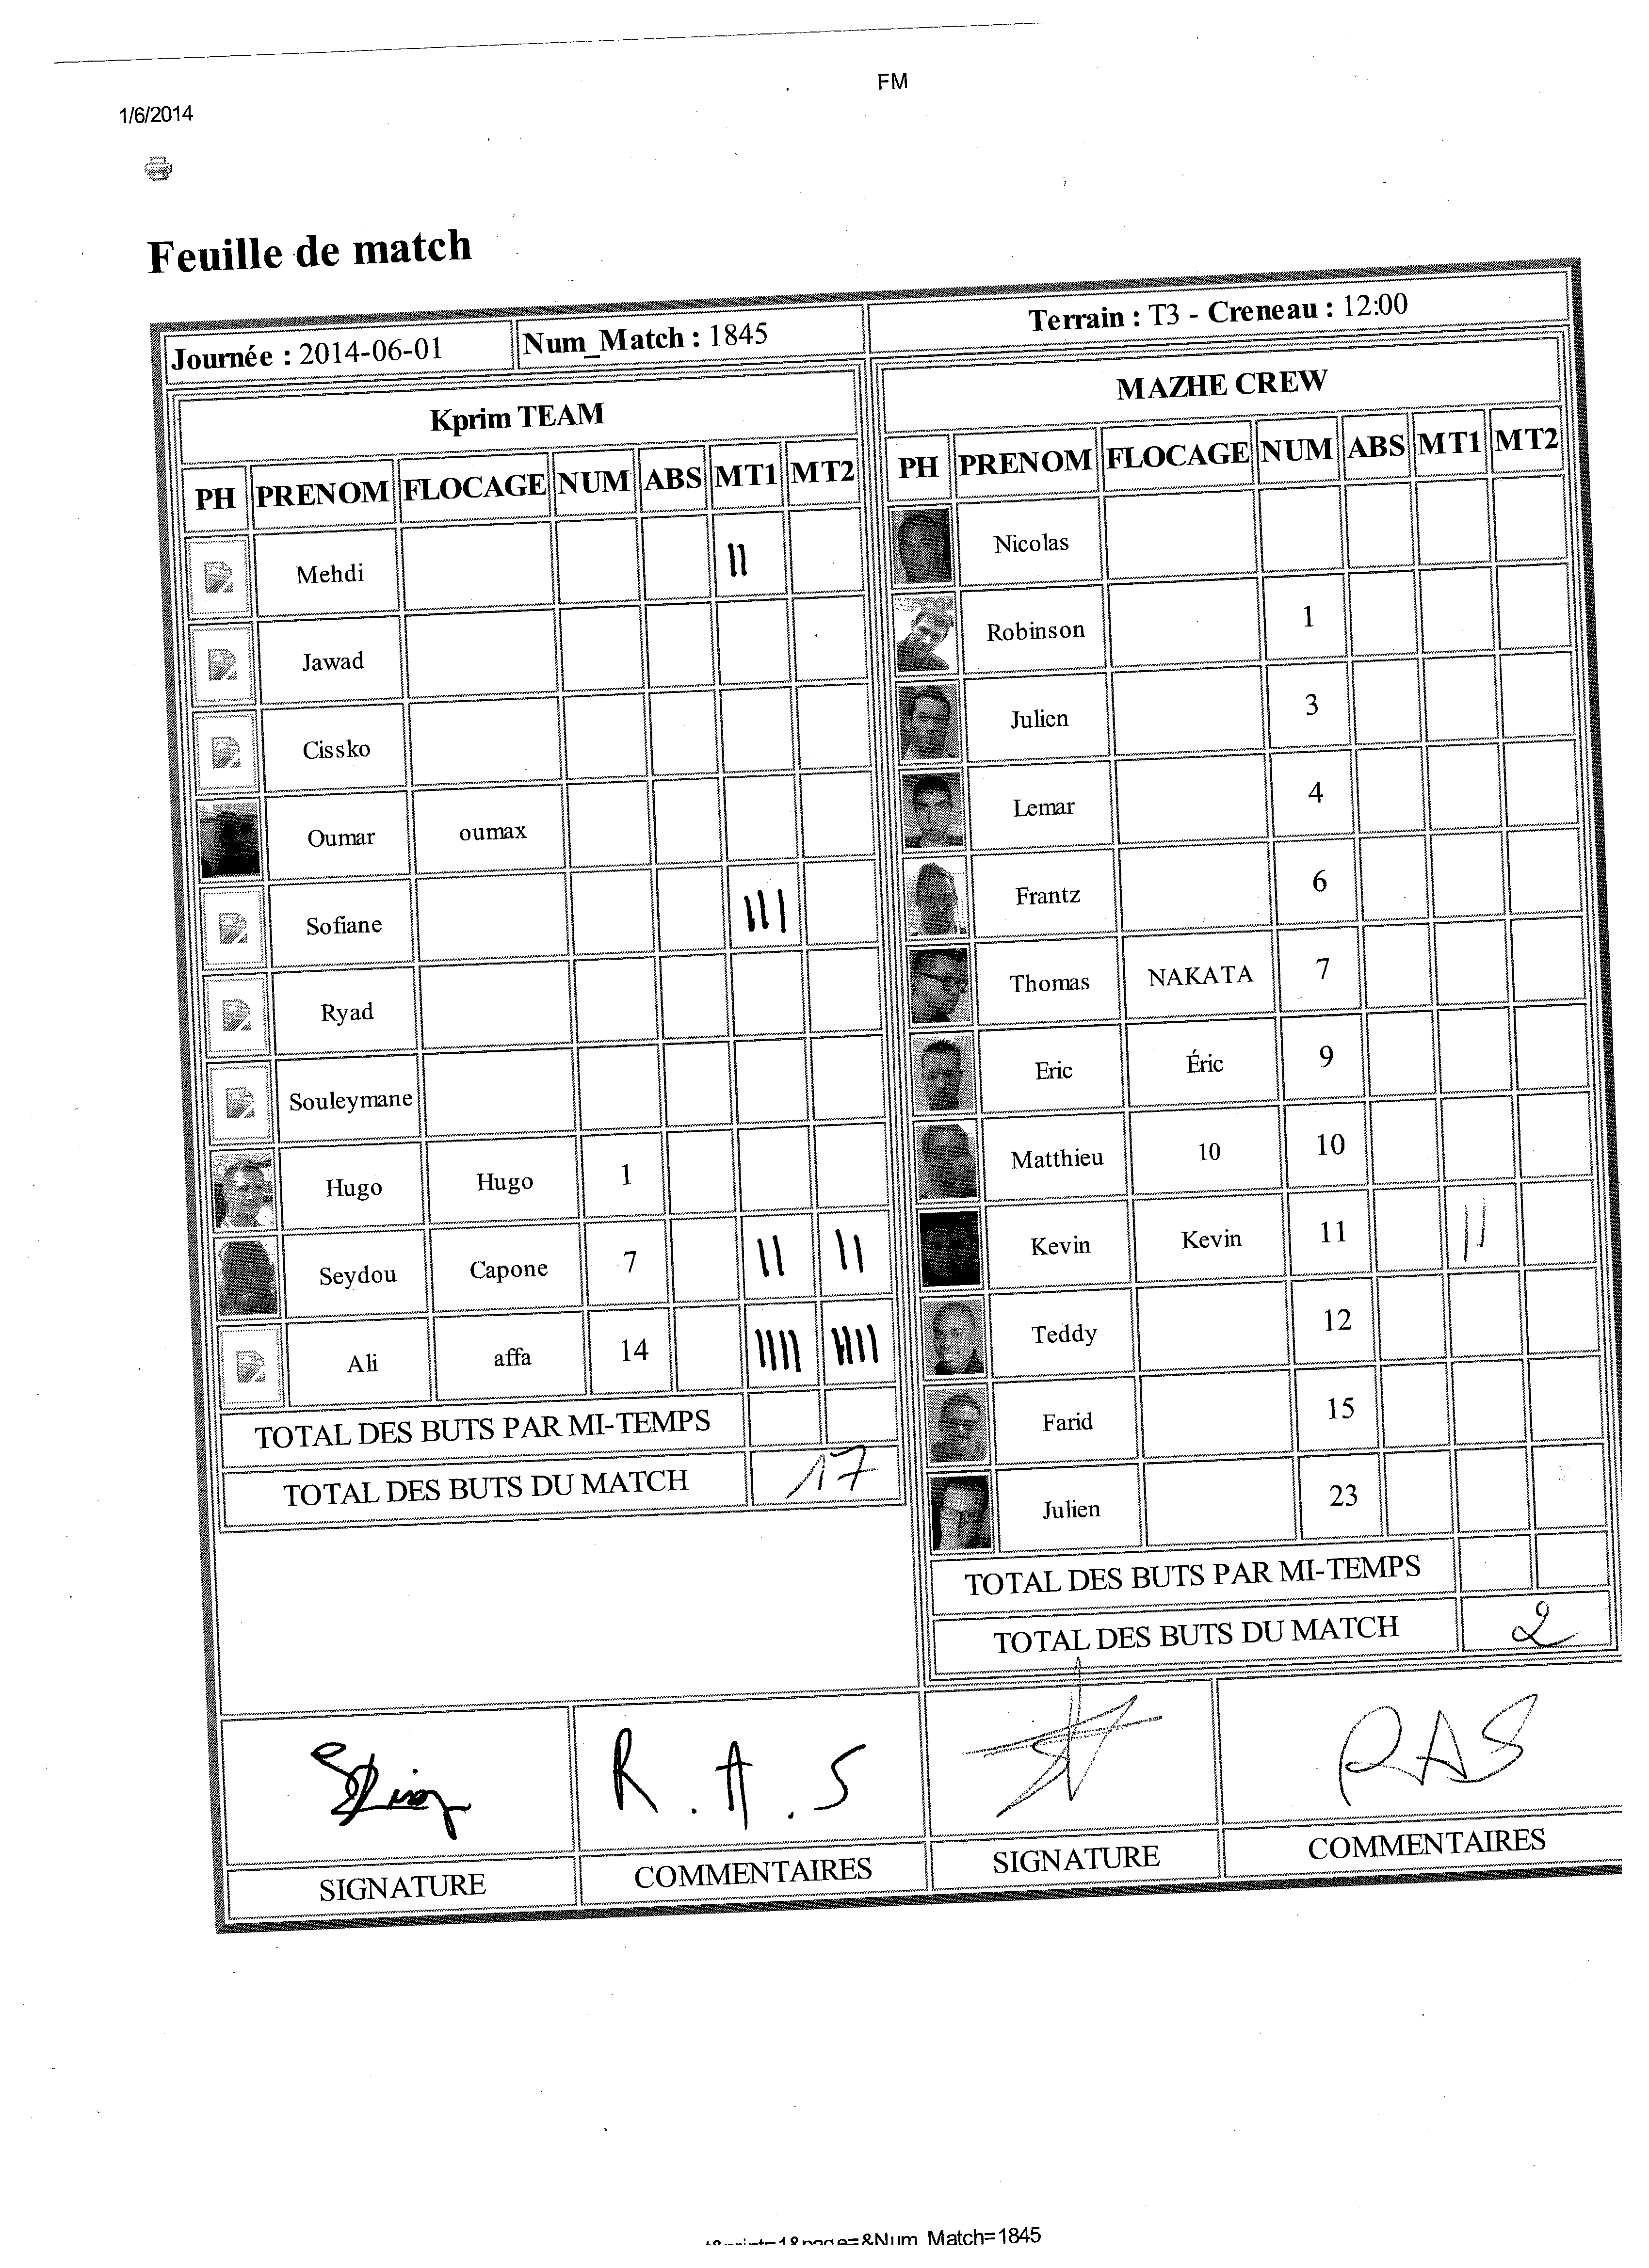 FM
1/6/2014
Feuille de match
Journée : 2014-06-01 Num_Match : 1845 Terrain : T3 - Creneau : 12:00
Kprim TEAM
PH PRENOM FLOCAGE NUM ABS MT1 MT2
Mehdi ||
Jawad
Cissko
Oumar oumax
Sofiane |||
Ryad
Souleymane
Hugo Hugo 1
Seydou Capone 7 || ||
Ali affa 14 |||| ||||
TOTAL DES BUTS PAR MI-TEMPS
TOTAL DES BUTS DU MATCH 17
MAZHE CREW
PH PRENOM FLOCAGE NUM ABS MT1 MT2
Nicolas
Robinson 1
Julien 3
Lemar 4
Frantz 6
Thomas NAKATA 7
Eric Éric 9
Matthieu 10 10
Kevin Kevin 11 ||
Teddy 12
Farid 15
Julien 23
TOTAL DES BUTS PAR MI-TEMPS
TOTAL DES BUTS DU MATCH 2
R.A.S
RAS
SIGNATURE COMMENTAIRES SIGNATURE COMMENTAIRES
=1&page=&Num_Match=1845